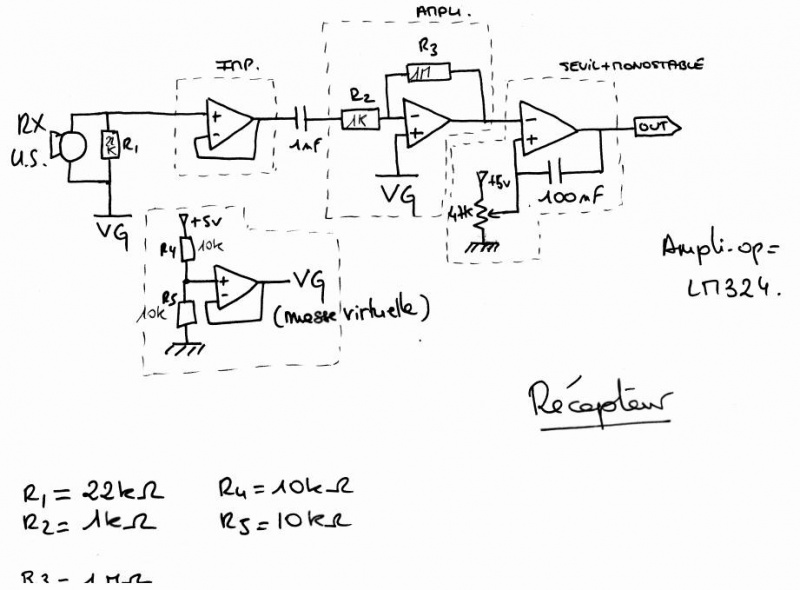 AMPLI.
IMP.
R3
1M
SEUIL+MONOSTABLE
RX
U.S.
R1
R2
1K
1nF
+
-
-
+
-
+
OUT
VG
VG
+5v
47k
100nF
+5v
R4
10k
R5
10k
+
-
VG
(masse virtuelle)
Ampli-op=
LM324.
Récepteur
R1 = 22kΩ
R4 = 10kΩ
R2 = 1kΩ
R5 = 10kΩ
R3 = 1MΩ